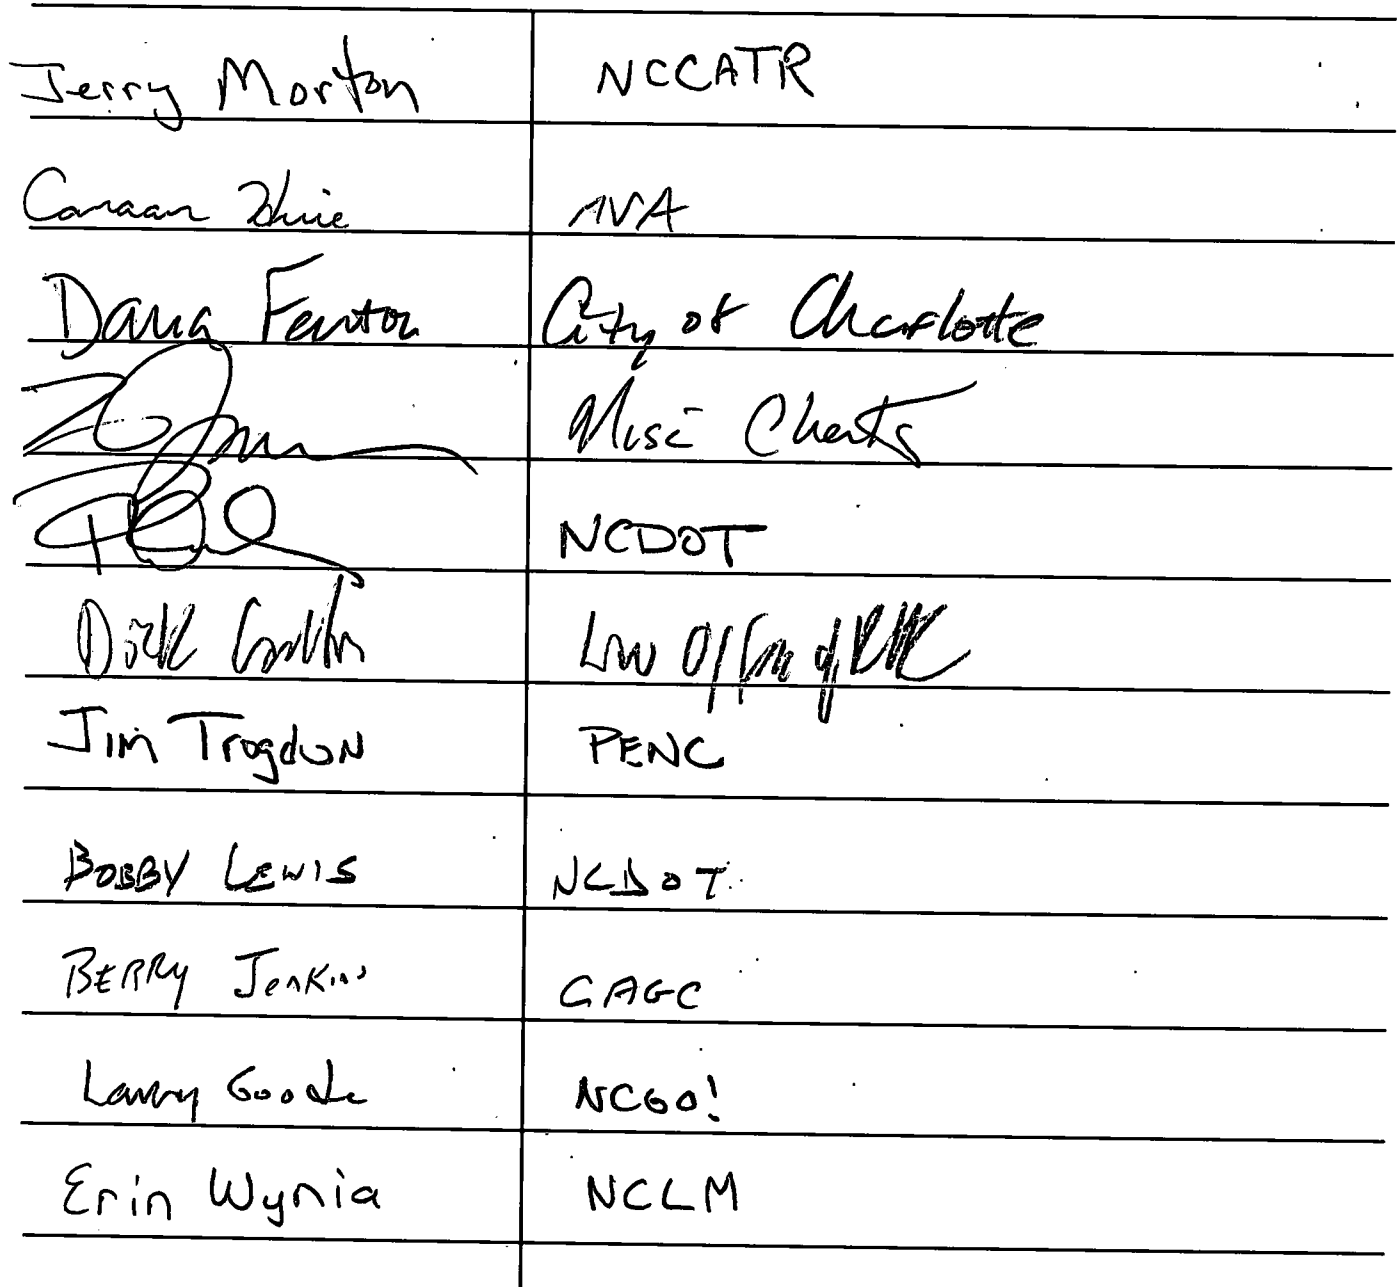 Jerry Morton NCCATR
Canaan
Dana Fenton City of Charlotte
Misc Clients
NCDOT
Dick Law
Jim Trogdon PENC
BOBBY LEWIS NCDOT
BERRY Jenkins CAGC
Larry Goode NCGO!
Erin Wynia NCLM